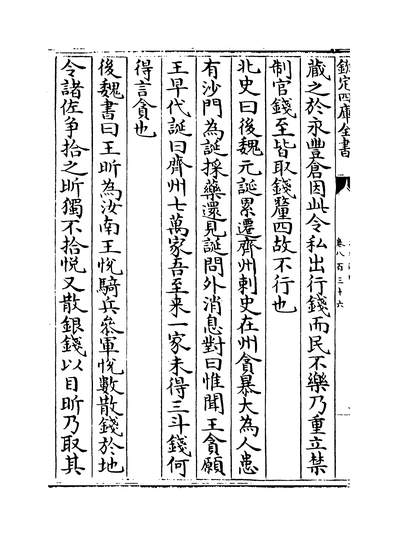 欽定四庫全書
卷八百三十六
蔵之於永豐倉因此令私出行錢而民不樂乃重立禁
制官錢至皆取錢釐四故不行也
北史曰後魏元誕累遷齊州刺史在州貪暴大為人患
有沙門為誕採藥還見誕問外消息對曰惟聞王貪願
王早代誕曰齊州七萬家吾至来一家未得三斗錢何
得言貪也
後魏書曰王昕為汝南王悅騎兵叅軍悅數散錢於地
令諸佐争拾之昕獨不拾悅又散銀錢以目昕乃取其